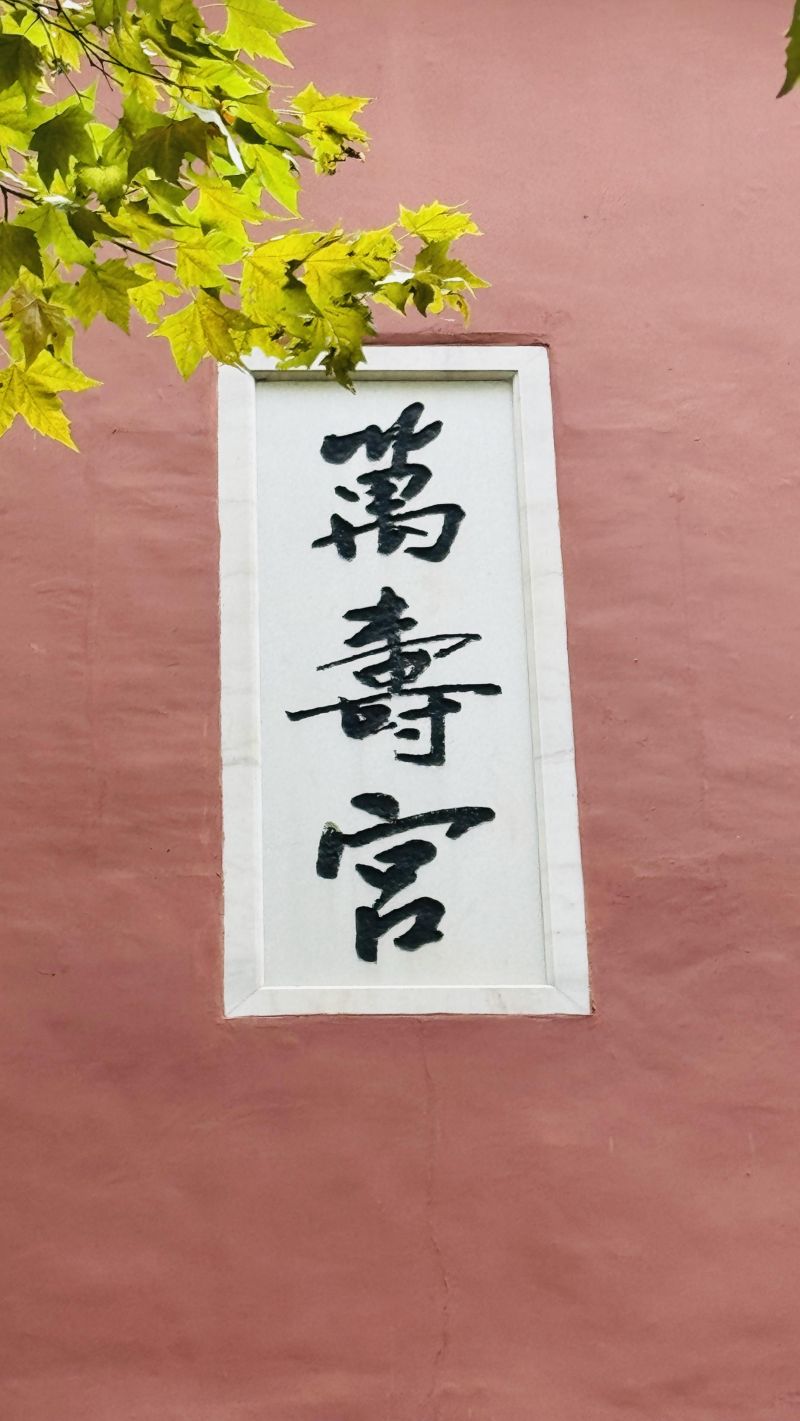 萬壽宮